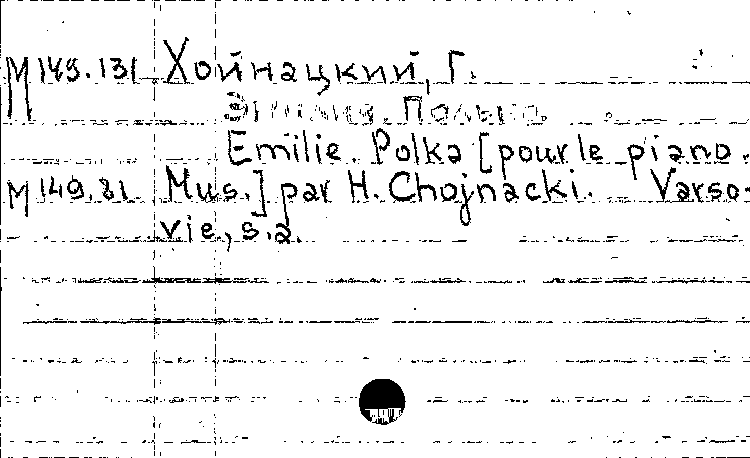 М 149.131 Хойнацкий, Г.
Эмилия. Полька.
Emilie. Polka [pour le piano.
М 149.81 Mus.] par H. Chojnacki. Varso-
vie, s.a.